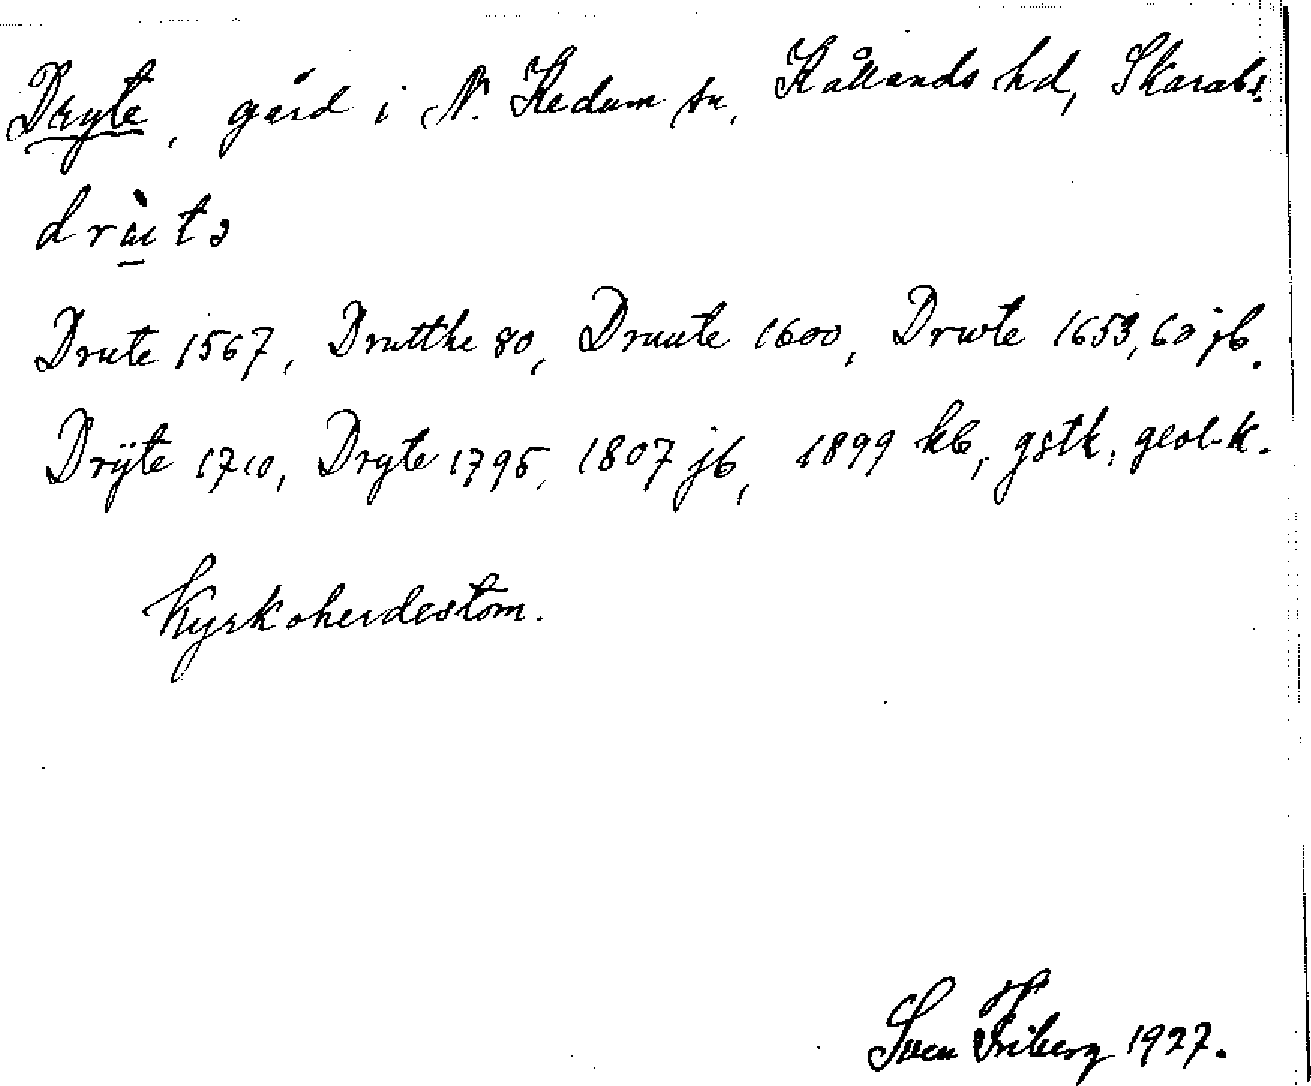 Dryte, gård i N. Kedum sn, Kållands hd, Skarabs.
Drute 1567, Drutthe 80, Druute 1600, Drwte 1653, 60 jb.
Drÿte 1710, Dryte 1795, 1807 jb, 1899 kb, gstk, geol.k.
Kyrkoherdestom.
Sven Friberg 1927.